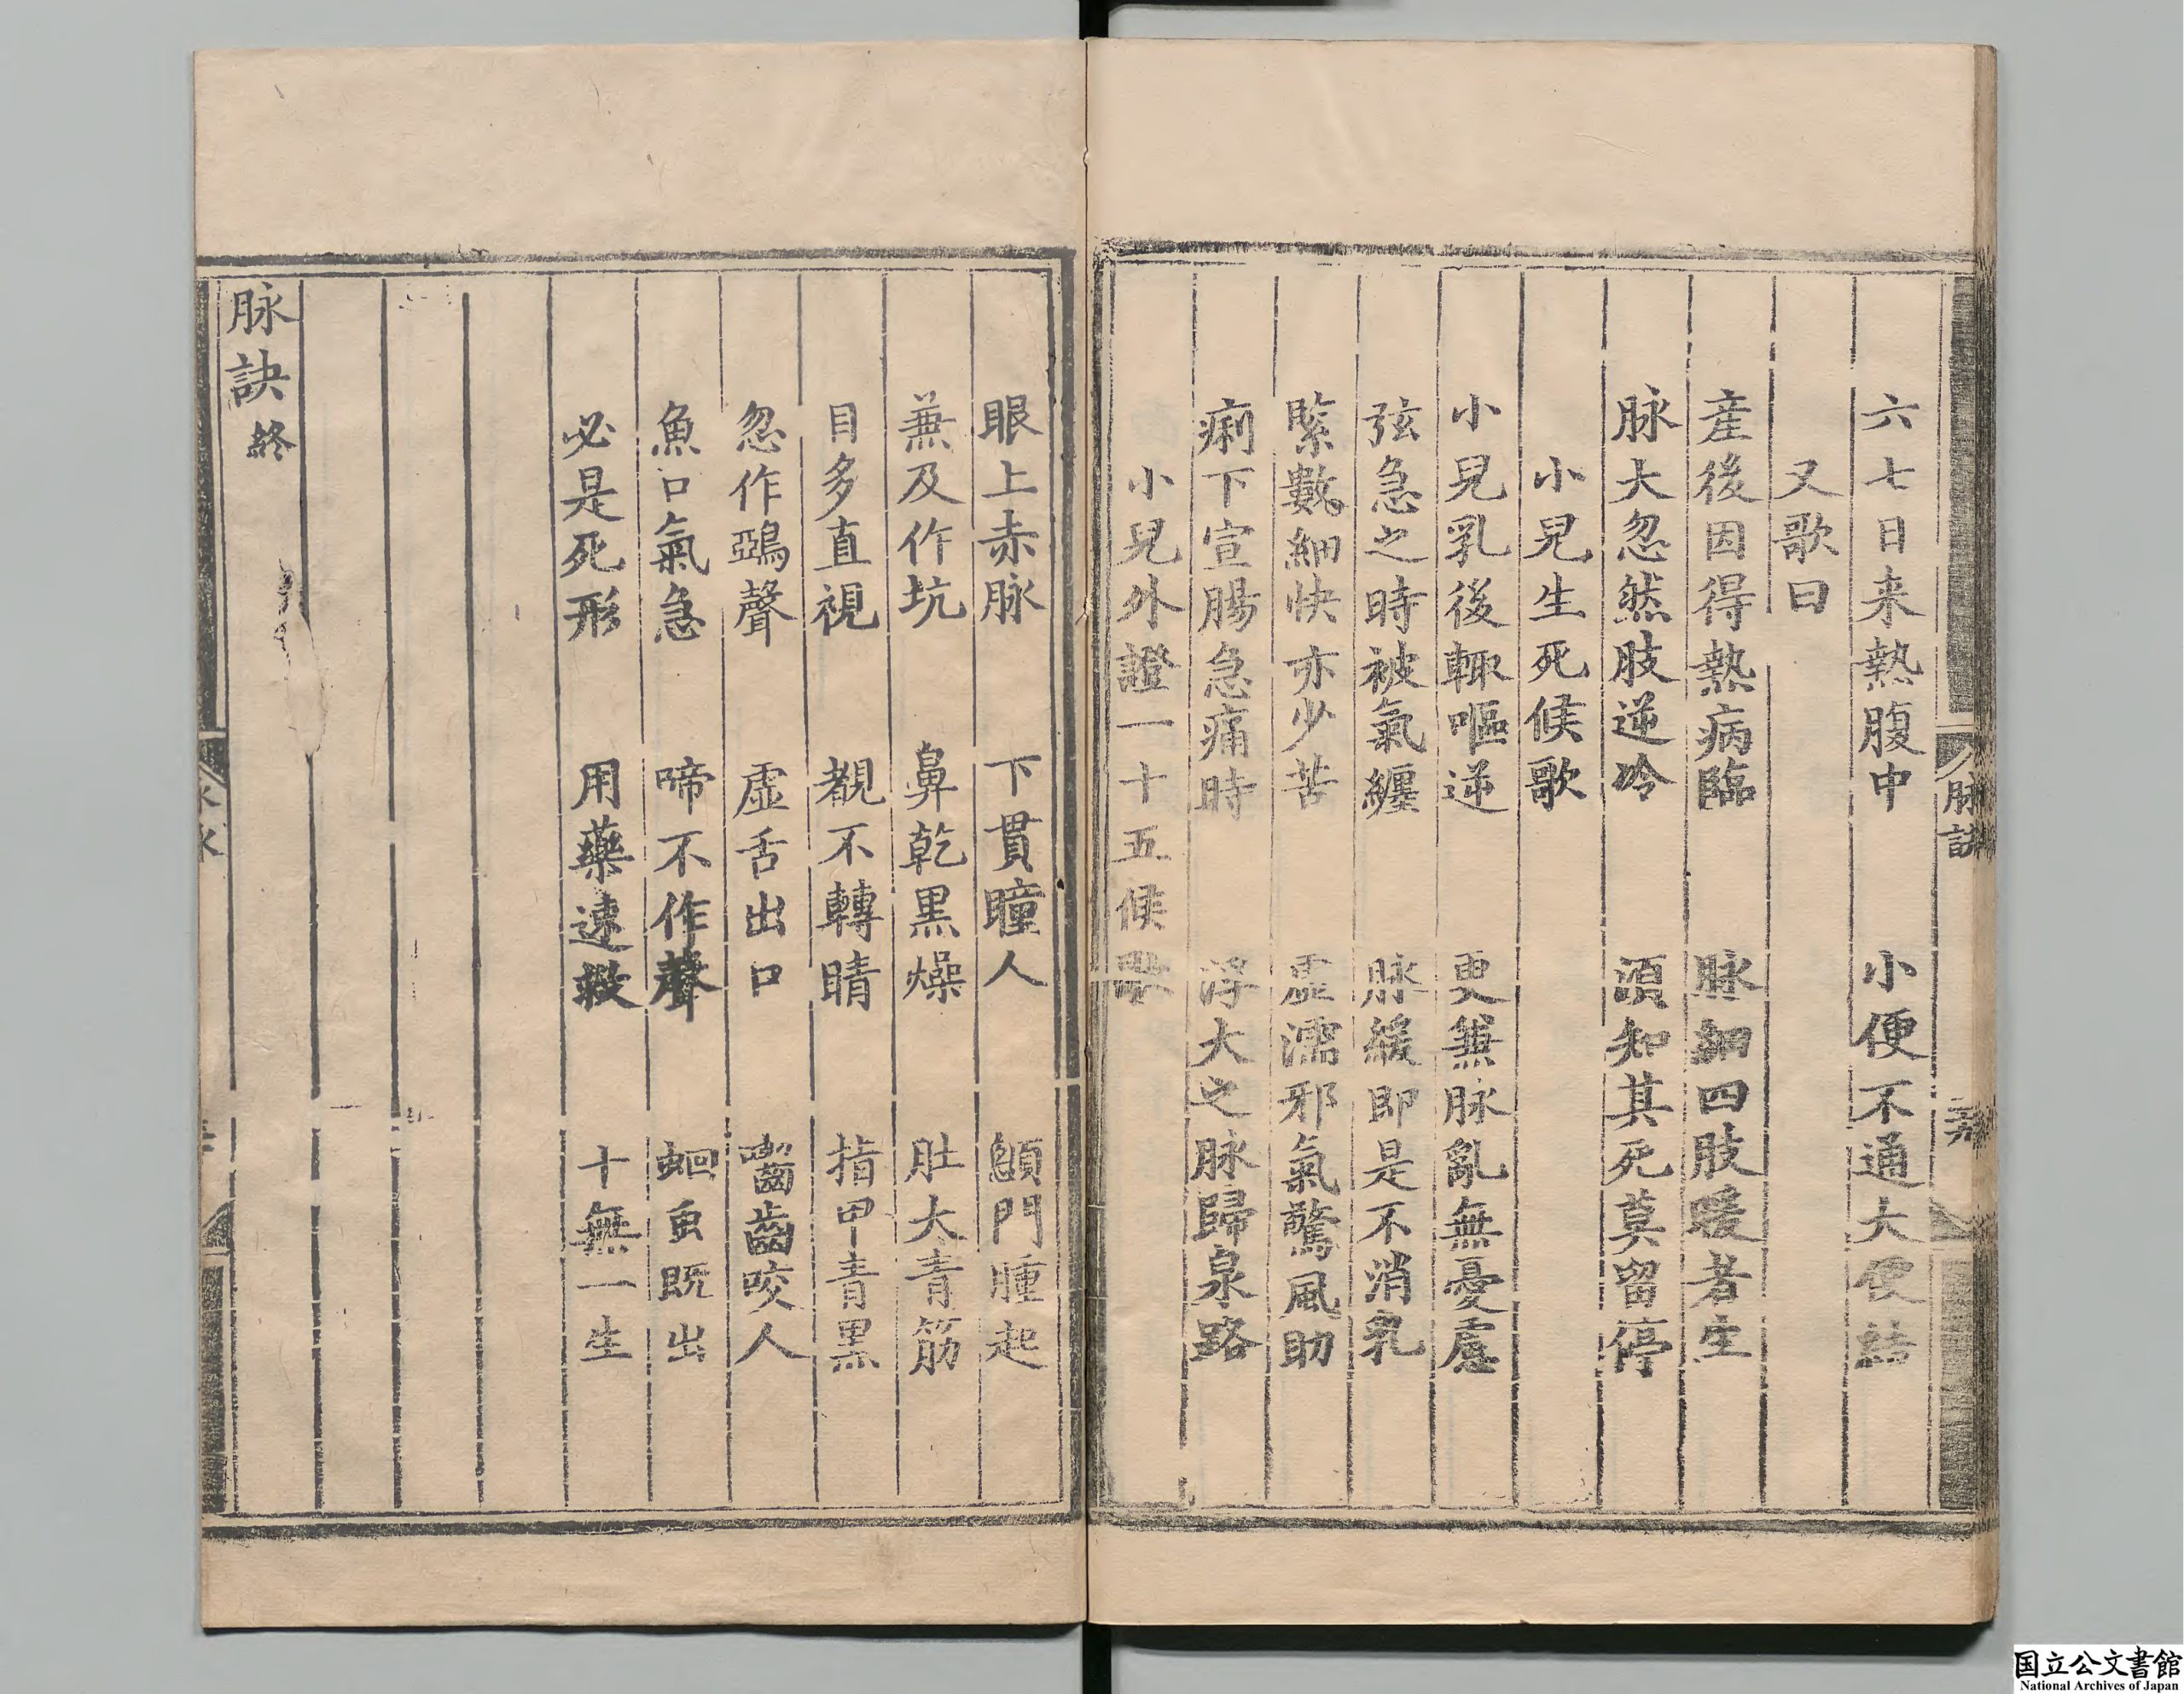 六七日来熱腹中　小便不通大便結
又歌曰
産後因得熱病臨　脉細四肢暖者生
脉大忽然肢逆冷　須知其死莫留停
小兒生死候歌
小兒乳後輙嘔逆　更兼脉亂無憂慮
弦急之時被氣纏　脉緩即是不消乳
緊數細快亦少苦　虚濡邪氣驚風助
痢下宣腸急痛時　浮大之脉歸泉路
小兒外證一十五候歌
脉訣
眼上赤脉　下貫瞳人　顖門腫起
兼及作坑　鼻乾黒燥　肚大青筋
目多直視　覩不轉睛　指甲青黒
忽作鵶聲　虚舌出口　齧齒咬人
魚口氣急　啼不作聲　蛔虫既出
必是死形　用藥速救　十無一生
脉訣終
国立公文書館
National Archives of Japan